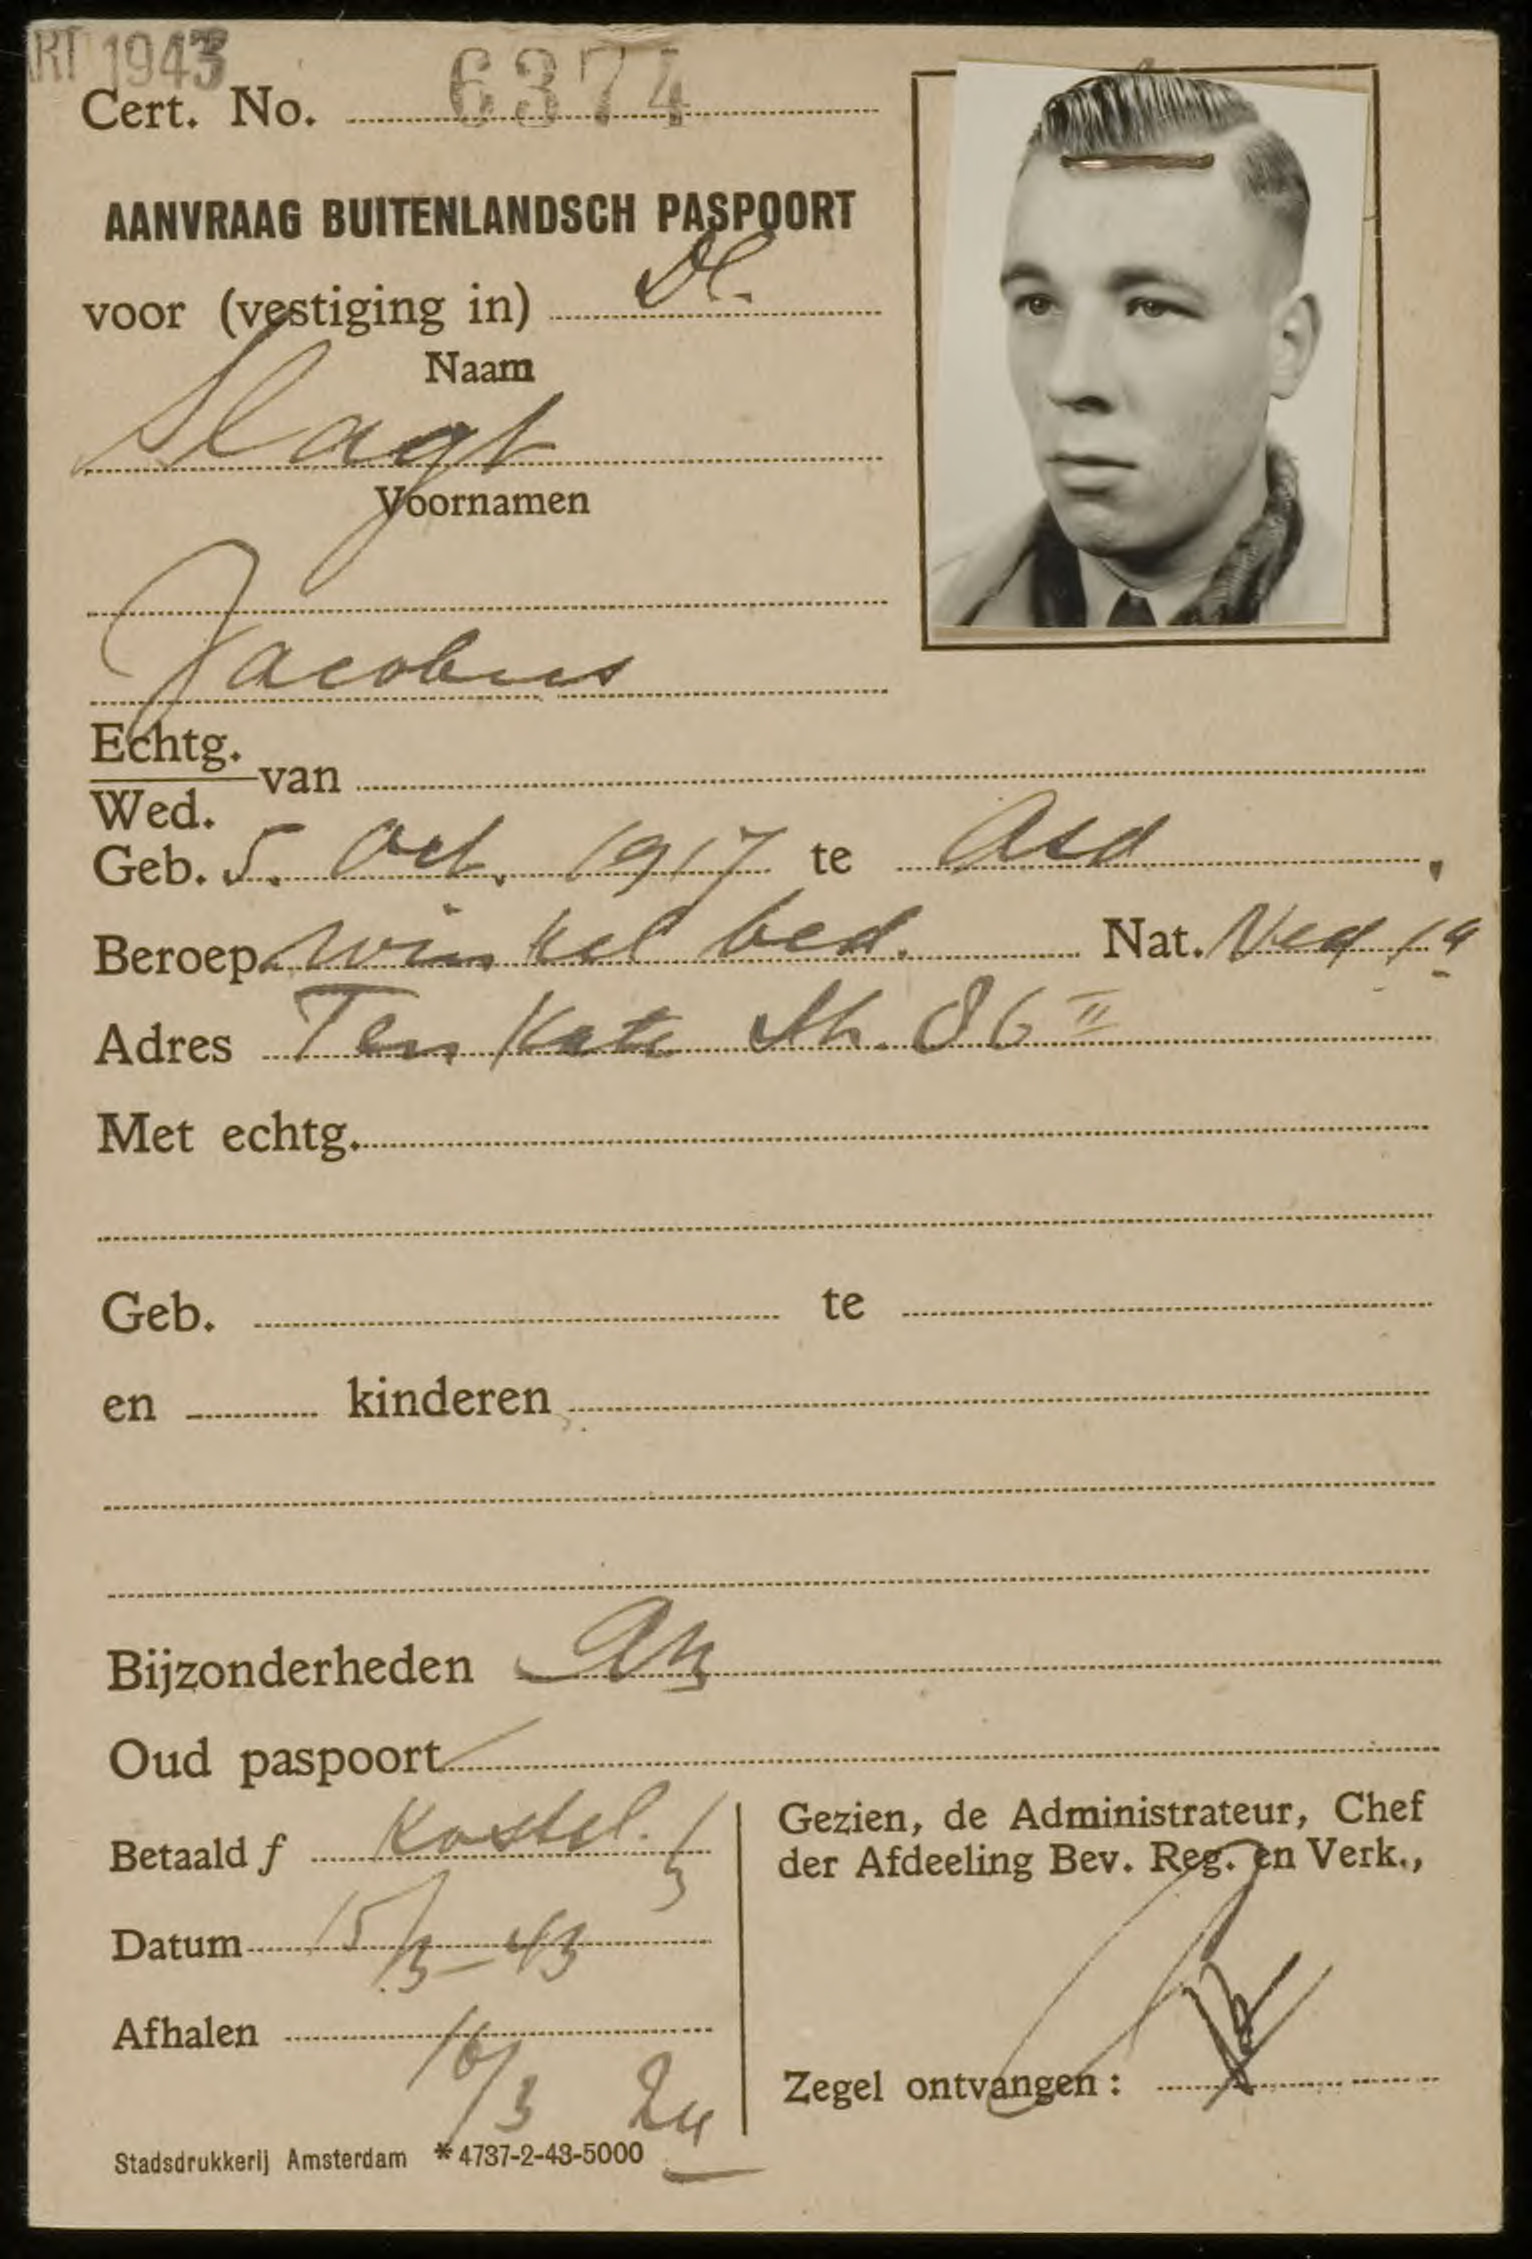 RT 1943
Cert. No. 6374
AANVRAAG BUITENLANDSCH PASPOORT
voor (vestiging in) Dl.
Naam
Slagt
Voornamen
Jacobus
Echtg.
van
Wed.
Geb. 5. Oct. 1917 te Asd
Beroep winkel bed. Nat. Ned
Adres Ten Kate Str. 86 II
Met echtg.
Geb. te
en kinderen
Bijzonderheden
Oud paspoort
Betaald f Kostel.
Datum 15/3-43
Afhalen 16/3
Gezien, de Administrateur, Chef
der Afdeeling Bev. Reg. en Verk.,
Zegel ontvangen:
Stadsdrukkerij Amsterdam * 4737-2-43-5000